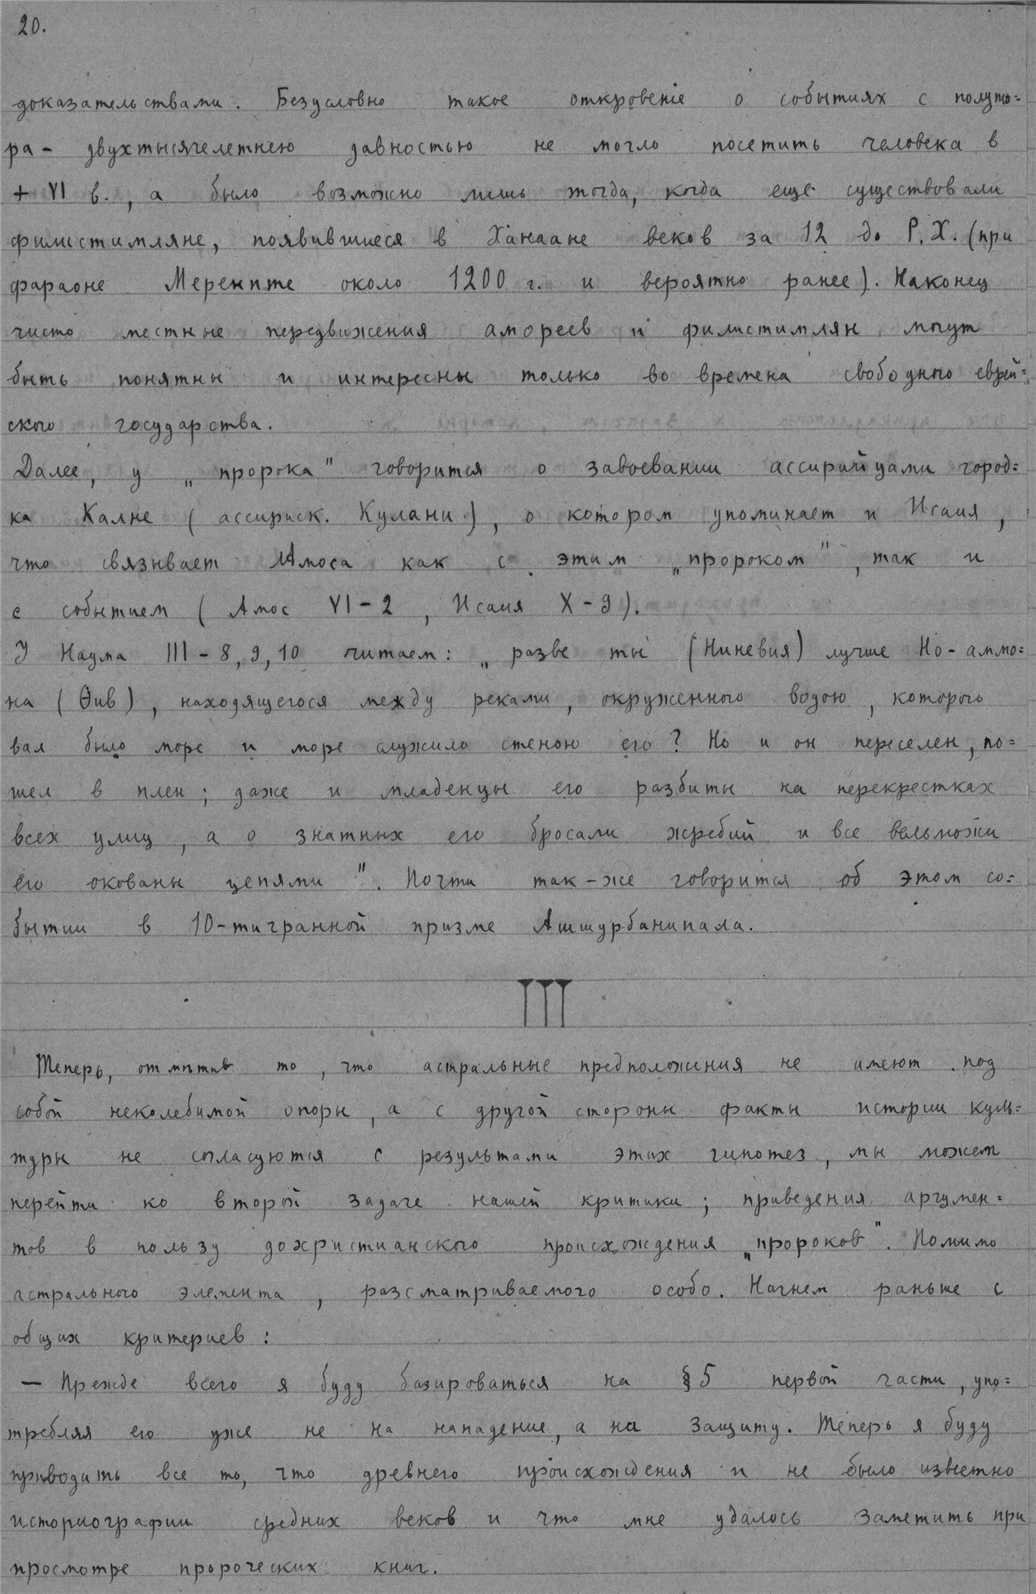 20.
доказательствами. Безусловно такое откровенiе о событиях с полуто=
ра- двухтысячелетнею давностью не могло посетить человека в
+ VI в., а было возможно лишь тогда, когда еще существовали
филистимляне, появившиеся в Ханаане веков за 12 до Р.Х. (при
фараоне Меренпте около 1200 г. и вероятно ранее). Наконец
чисто местные передвижения амореев и филистимлян могут
быть понятны и интересны только во времена свободного еврей=
ского государства.
Далее, у „пророка" говорится о завоевании ассирийцами город=
ка Калне (ассирийск. Кулани), о котором упоминает и Исаия,
что связывает Амоса как с этим „пророком", так и
с событием (Амос VI-2, Исаия X-9).
У Наума III-8,9,10 читаем: „разве ты (Ниневия) лучше Но-аммо=
на (Фив), находящегося между реками, окруженного водою, которого
вал было море и море служило стеною его? Но и он переселен, по=
шел в плен; даже и младенцы его разбиты на перекрестках
всех улиц, а о знатных его бросали жребий и все вельможи
его окованы цепями". Почти так-же говорится об этом со=
бытии в 10-тигранной призме Ашшурбанипала.
III
Теперь, отметив то, что астральные предположения не имеют под
собой неколебимой опоры, а с другой стороны факты истории куль=
туры не согласуются с результами этих гипотез, мы можем
перейти ко второй задаче нашей критики; приведения аргумен=
тов в пользу дохристианского происхождения „пророков". Помимо
астрального элемента, разсматриваемого особо. Начнем раньше с
общих критериев:
— Прежде всего я буду базироваться на §5 первой части, упо=
требляя его уже не на нападение, а на защиту. Теперь я буду
приводить все то, что древнего происхождения и не было известно
историографии средних веков и что мне удалось заметить при
просмотре пророческих книг.